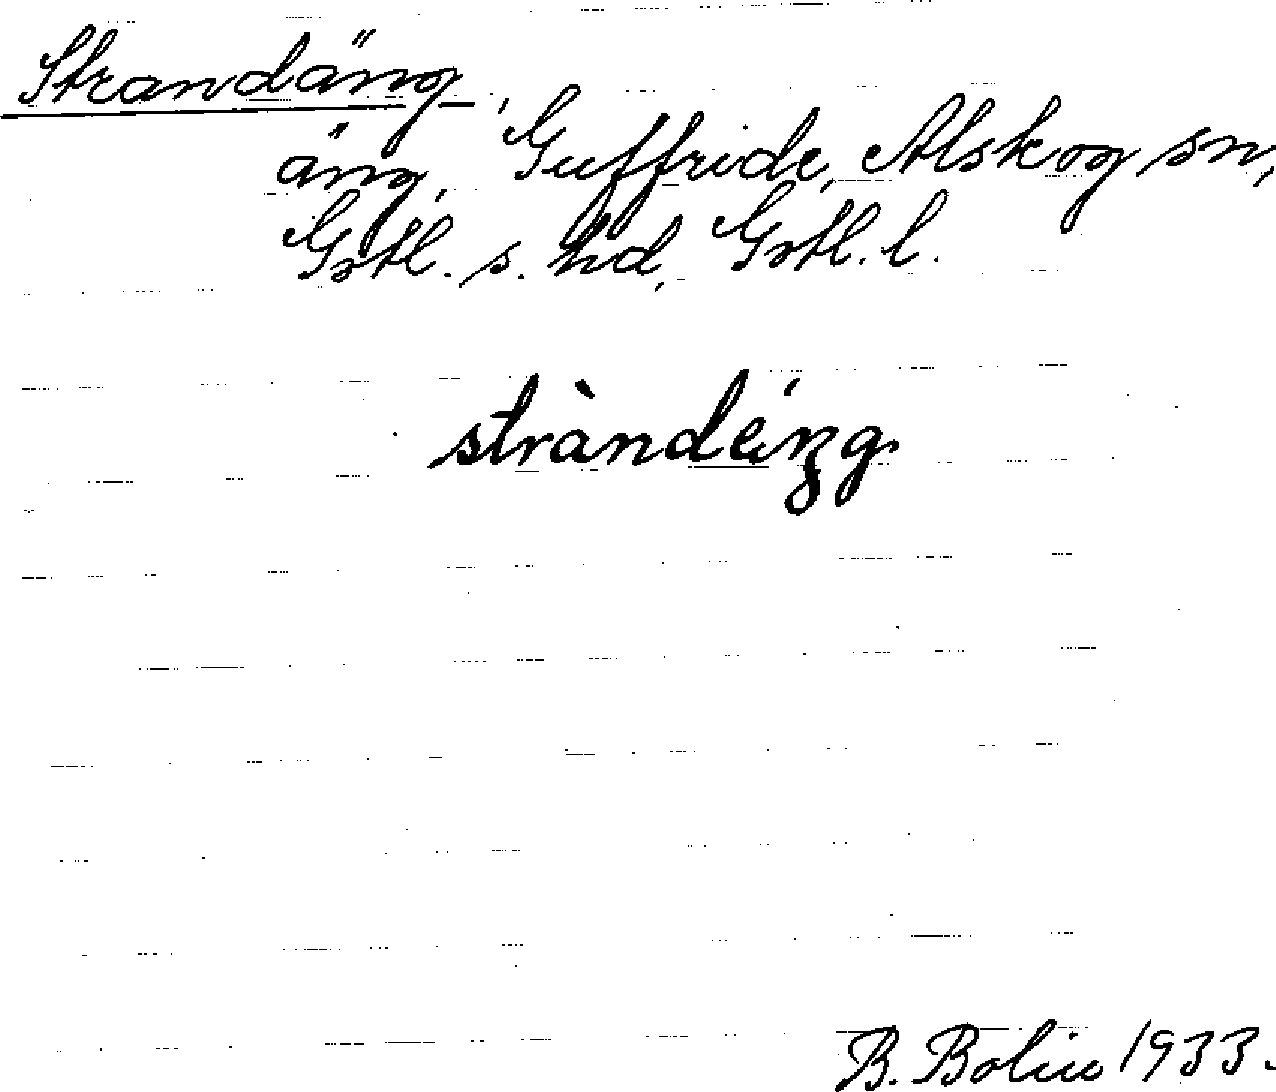 Strandäng,
äng, Guffride, Alskog sn,
Gotl. s. hd, Gotl. l.
stràndéŋg.
B. Bolin 1933.